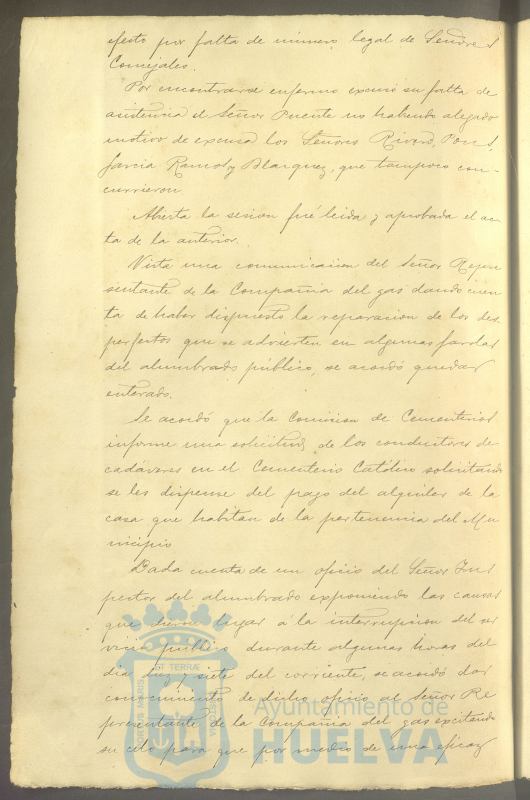 efecto por falta de número legal de Señores
Concejales.
Por encontrarse enfermo escusó su falta de
asistencia el Señor Puente no habiendo alegado
motivo de escusa los Señores Rivero, Pons,
García Ramos y Blazquez, que tampoco con-
currieron
Abierta la sesion fué leida y aprobada el ac-
ta de la anterior.
Vista una comunicacion del Señor Repre
sentante de la Compañia del gas dando cuen
ta de haber dispuesto la reparacion de los des
perfectos que se advierten en algunas farolas
del alumbrado público, se acordó quedar
enterado.
Se acordó que la Comision de Cementerios
informe una solicitud de los conductores de
cadáveres en el Cementerio Católico solicitando
se les dispense del pago del alquiler de la
casa que habitan de la pertenencia del Mu
nicipio
Dada cuenta de un oficio del Señor Ins
pector del alumbrado exponiendo las causas
que dieron lugar á la interrupcion del ser
vicio público durante algunas horas del
dia diez y siete del corriente, se acordó dar
conocimiento de dicho oficio al Señor Re
presentante de la Compañia del gas excitando
su celo para que por medio de una eficaz
Ayuntamiento de
HUELVA